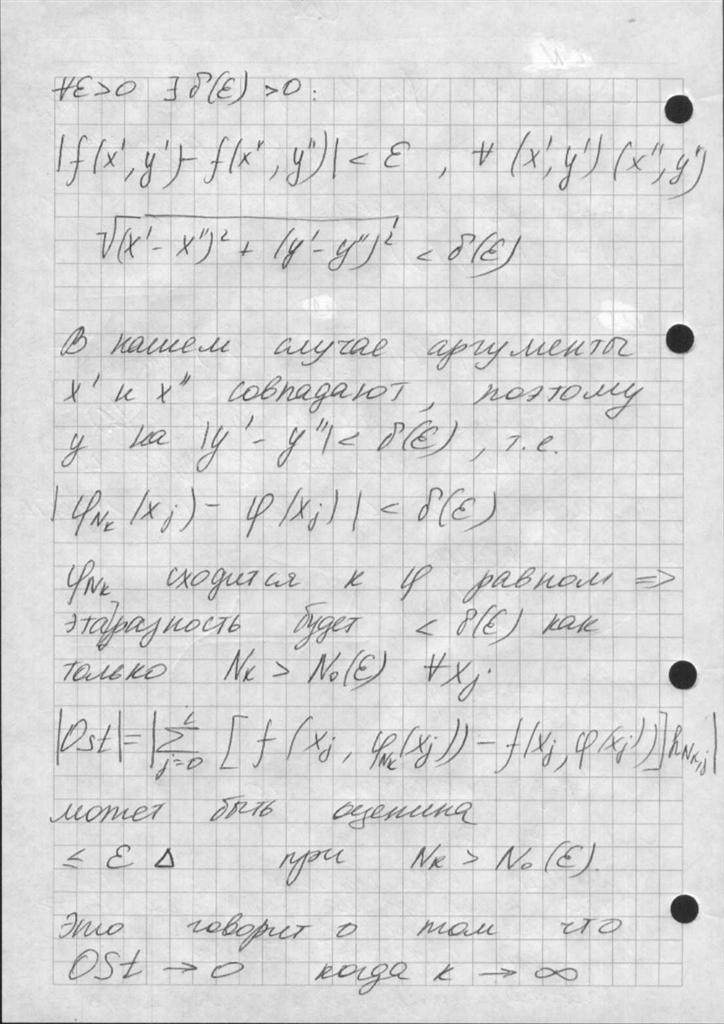 ∀ε>0 ∃ δ(ε) >0:
|f(x', y') - f(x'', y'')| < ε , ∀ (x', y') (x'', y'')
√(x' - x'')² + (y' - y'')² < δ(ε)
В нашем случае аргументы
x' и x'' совпадают, поэтому
y на |y' - y''| < δ(ε), т.е.
|φ_{N_k}(x_j) - φ(x_j)| < δ(ε)
φ_{N_k} сходится к φ равном =>
эта разность будет < δ(ε) как
только N_k > N_0(ε) ∀x_j.
|Ost| = |∑_{j=0}^{i} [f(x_j, φ_{N_k}(x_j)) - f(x_j, φ(x_j))] h_{N_k,j}|
может быть оценина
≤ ε Δ при N_k > N_0(ε).
Это говорит о том что
Ost → 0 когда k → ∞